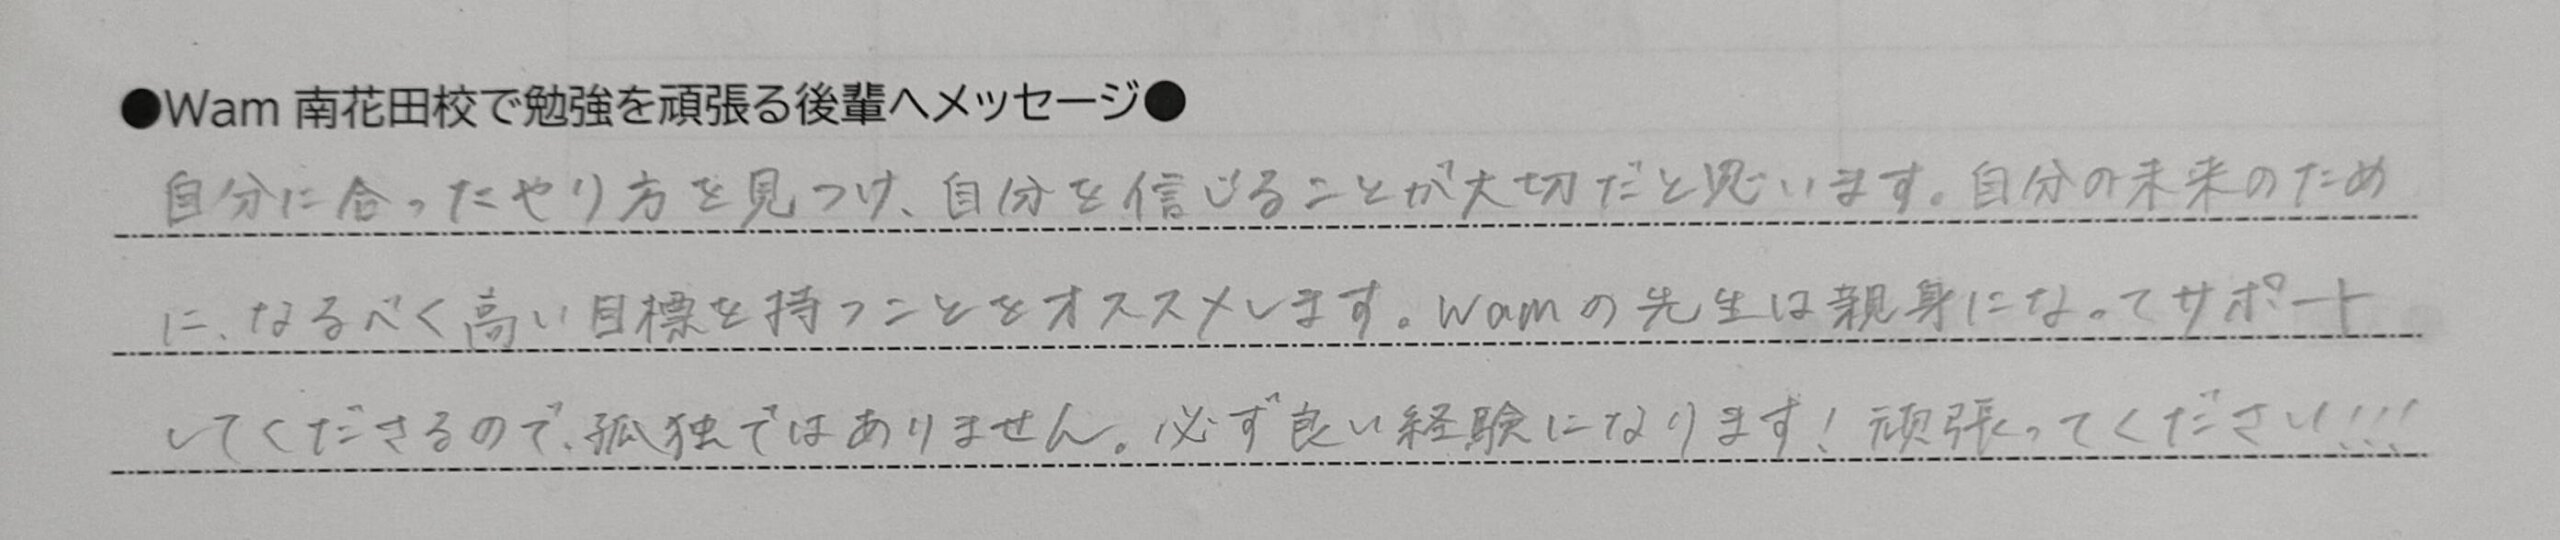 ●Wam 南花田校で勉強を頑張る後輩へメッセージ●
自分に合ったやり方を見つけ、自分を信じることが大切だと思います。自分の未来のため
に、なるべく高い目標を持つことをオススメします。Wamの先生は親身になってサポート
してくださるので、孤独ではありません。必ず良い経験になります!頑張ってください!!!